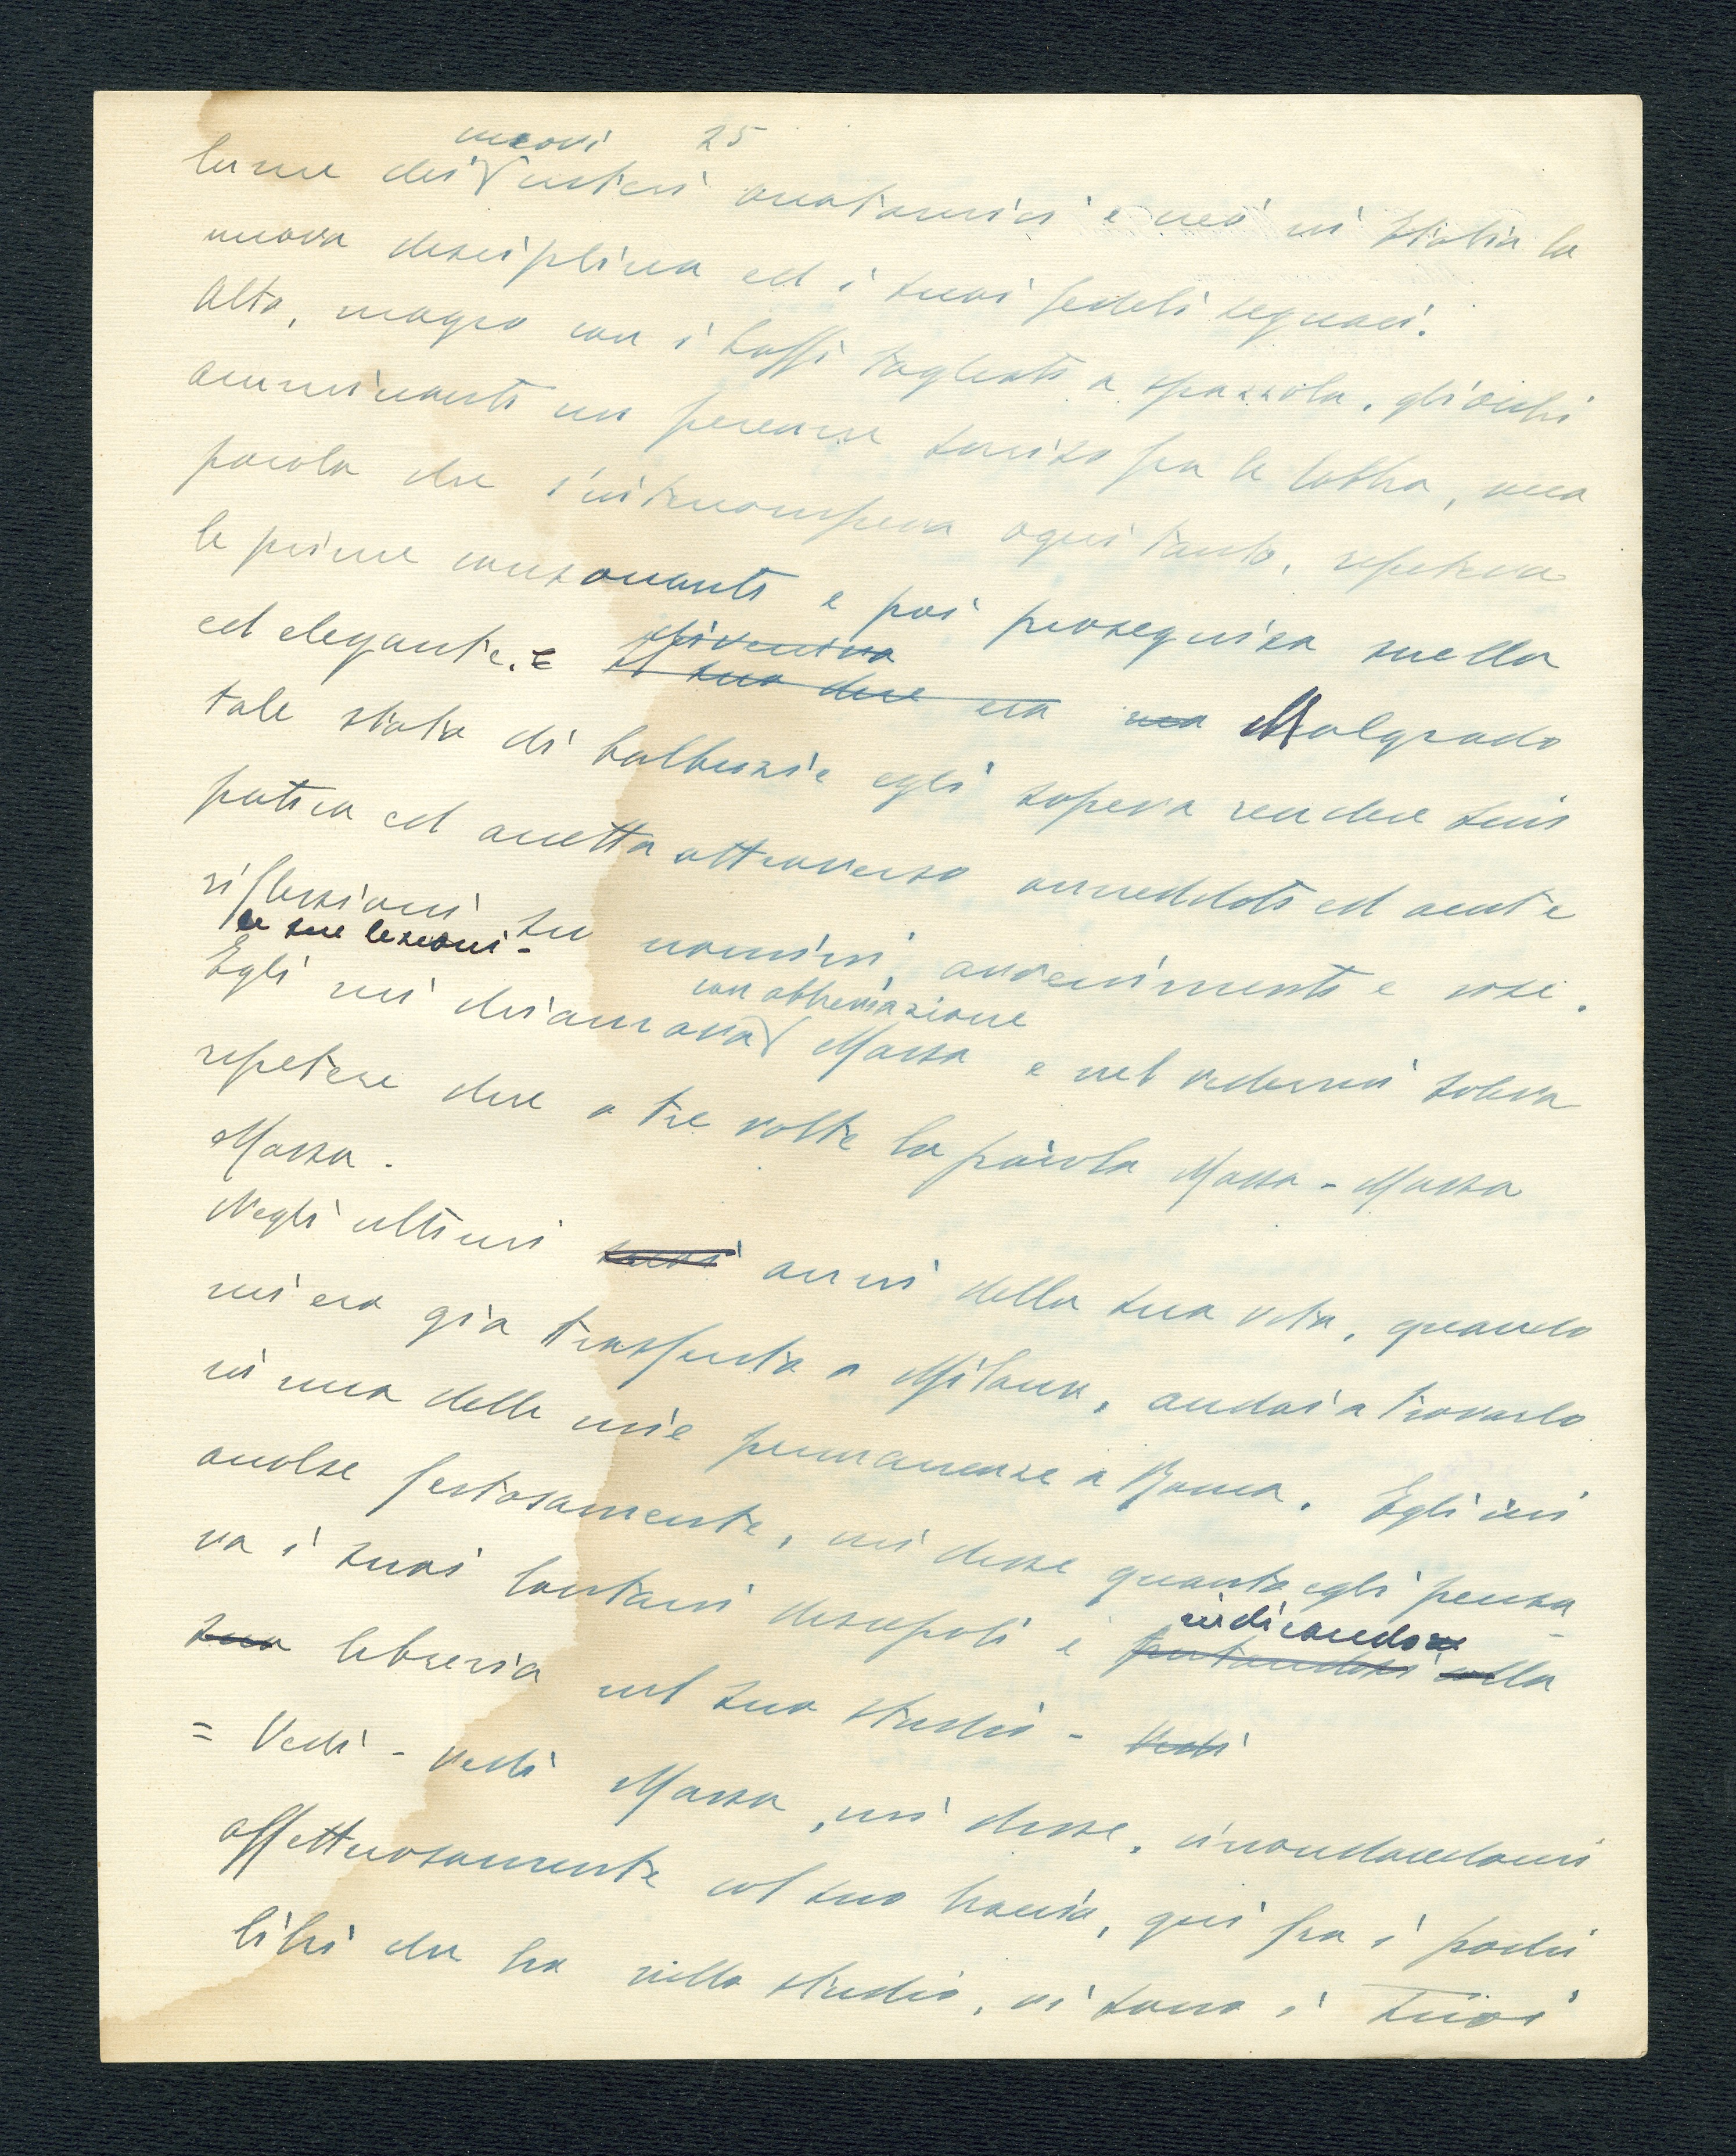 nuovi 25
lume dei criteri anatomici e creò in Italia la
nuova disciplina ed i suoi fedeli seguaci.
Alto, magro con i baffi tagliati a spazzola, gli occhi
ammiccanti un perenne sorriso fra le labbra, una
parola che s'interrompeva ogni tanto, ripeteva
le prime consonanti e poi proseguiva snella
ed elegante. = diventava
Il suo dire era una Malgrado
tale stato di balbuzie egli sapeva rendere sim
patica ed accetta attraverso aneddoti ed acute
riflessioni su uomini, avvenimenti e cose.
le sue lezioni -
con abbreviazione
Egli mi chiamava Massa e nel vedermi soleva
ripetere due o tre volte la parola Massa - Massa
Massa.
Negli ultimi suoi anni della sua vita, quando
mi ero già trasferito a Milano, andai a trovarlo
in una delle mie permanenze a Roma. Egli mi
accolse festosamente, mi disse quanto egli pensa-
va i suoi lontani discepoli e indicando
portandosi alla
sua libreria nel suo studio - Vedi
= Vedi - vedi Massa, mi disse, circondandomi
affettuosamente col suo braccio, qui fra i pochi
libri che ho nello studio, ci sono i Tuoi